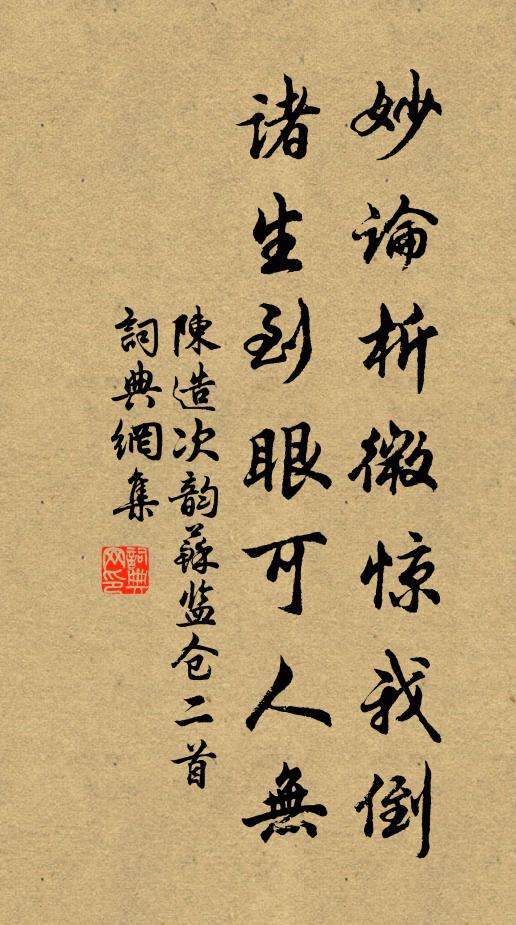 妙论析微惊我倒
诸生到眼可人無
陳造次韵蘇监仓二首
詞典網集
詞典网印